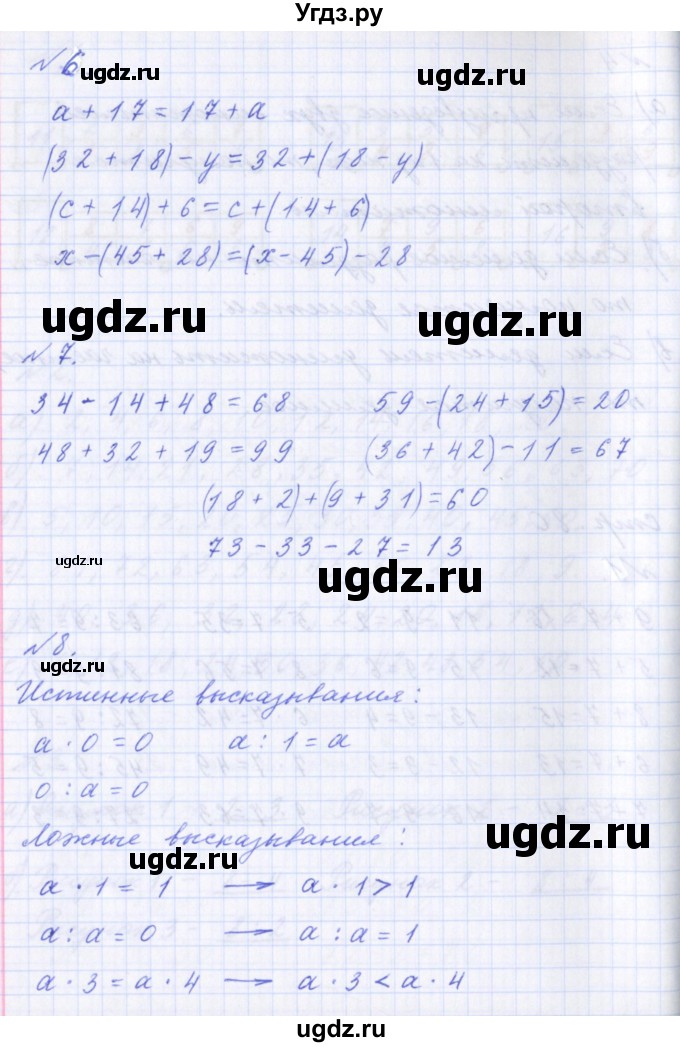 Угдз.ру
№6
a + 17 = 17 + a
(32 + 18) - y = 32 + (18 - y)
(c + 14) + 6 = c + (14 + 6)
x - (45 + 28) = (x - 45) - 28
№7.
34 - 14 + 48 = 68 59 - (24 + 15) = 20
48 + 32 + 19 = 99 (36 + 42) - 11 = 67
(18 + 2) + (9 + 31) = 60
73 - 33 - 27 = 13
№8.
Истинные высказывания:
a · 0 = 0 a : 1 = a
0 : a = 0
Ложные высказывания:
a · 1 = 1 → a · 1 > 1
a : a = 0 → a : a = 1
a · 3 = a · 4 → a · 3 < a · 4
ugdz.ru
ugdz.ru
ugdz.ru
ugdz.ru
ugdz.ru
ugdz.ru
ugdz.ru
ugdz.ru
ugdz.ru